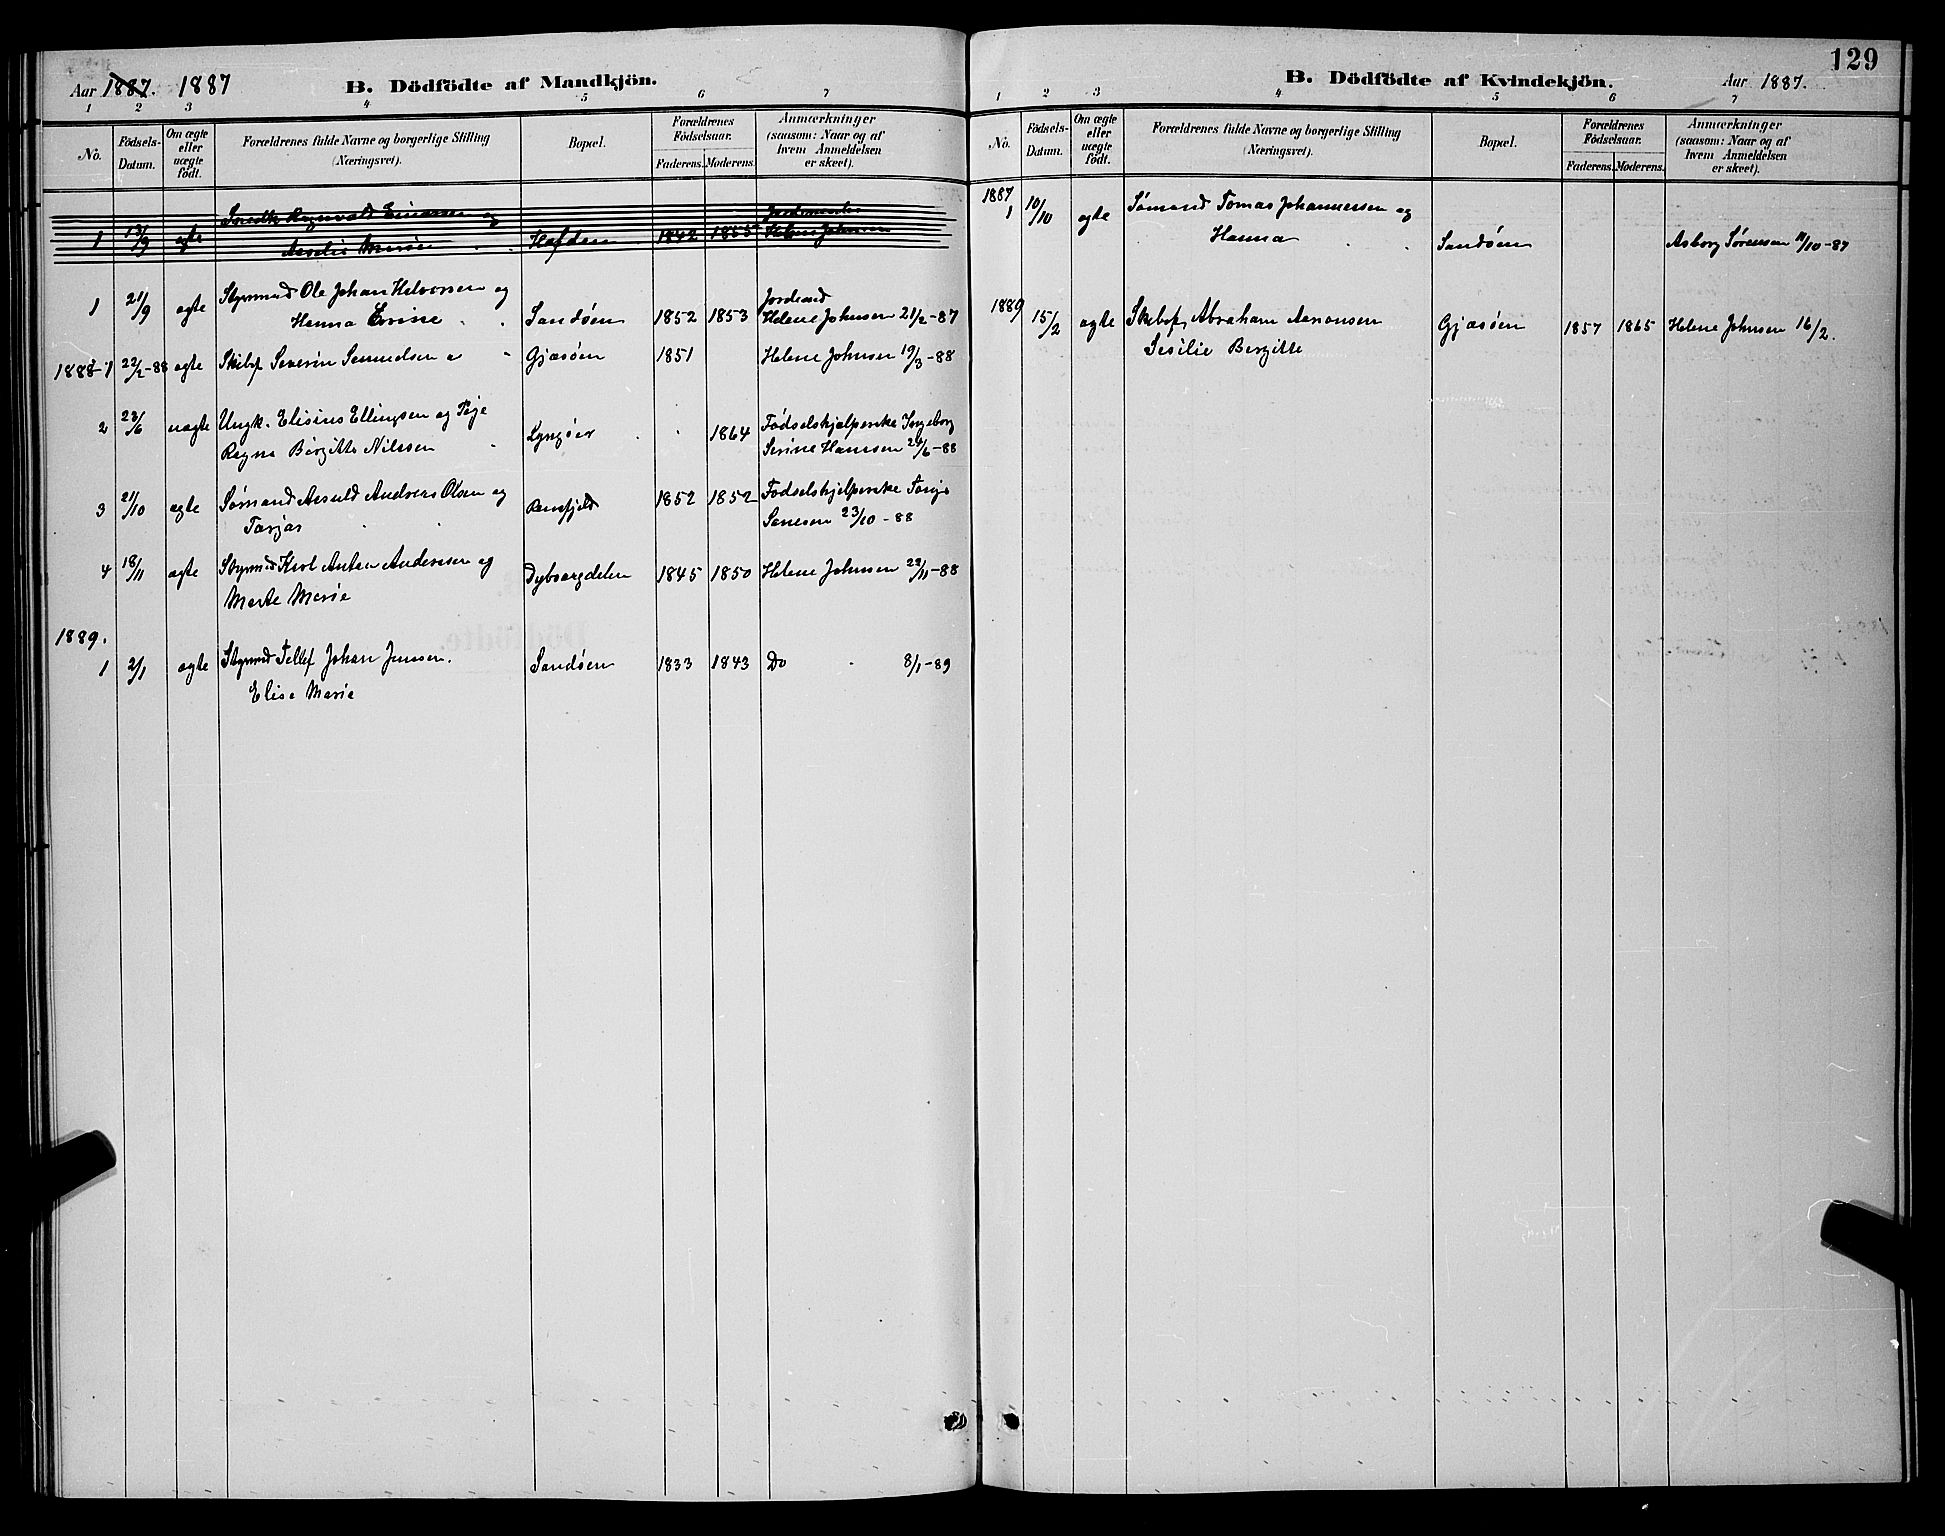 129
Aar 1887. 1887
B. Dödfödte af Mandkjön.
1 2 3 4 5 6 7
No.
Födsels-Datum.
Om ægte eller uægte födt.
Forældrenes fulde Navne og borgerlige Stilling
(Næringsvei).
Bopæl.
Forældrenes Födselsaar.
Faderens. Moderens.
Anmærkninger
(saasom: Naar og af
hvem Anmeldelsen
er skeet).
og
1 13/9 ægte Marie Hafden 1842 1855 Helene Johnsen
1 21/9 ægte Styrmand Ole Johan Halvorsen og Jordmod
Hanna Sandøen 1852 1853 Helene Johnsen 21/2-87
1888-1 22/2-88 ægte Skibsf Severin Gjæsøen 1851 Helene Johnsen 19/3-88
2 23/6 uægte Ungk. Elisius Ellingsen og Pige Fødselshjelperske Ingeborg
Birgitte Nilssen Lyngøer 1864 Serine Hansen 24/6-88
3 21/10 ægte Sømand Andreas Olsen og 1852 1852 Fødselshjelperske
Tarjer 23/10-88
4 18/11 ægte Styrmd Andersen og Dybvaagdalen 1845 1850 Helene Johnsen 22/11-88
Marte Marie
1889.
1 2/1 ægte Styrmd Tellef Johan Jensen. Sandøen 1833 1843 Do 8/1-89
Elise Marie
B. Dödfödte af Kvindekjön.
Aar 1887.
1 2 3 4 5 6 7
No.
Födsels-Datum.
Om ægte eller uægte födt.
Forældrenes fulde Navne og borgerlige Stilling
(Næringsvei).
Bopæl.
Forældrenes Födselsaar.
Faderens. Moderens.
Anmærkninger
(saasom: Naar og af
hvem Anmeldelsen
er skeet).
1887
1 10/10 ægte Sømand Tomas Johannessen og
Hanna Sandøen Asborg Sørensen 11/10-87
1889
15/2 ægte Skibsf. Abraham Aanonsen Gjæsøen 1857 1865 Helene Johnsen 16/2.
Sesilie Bergitte